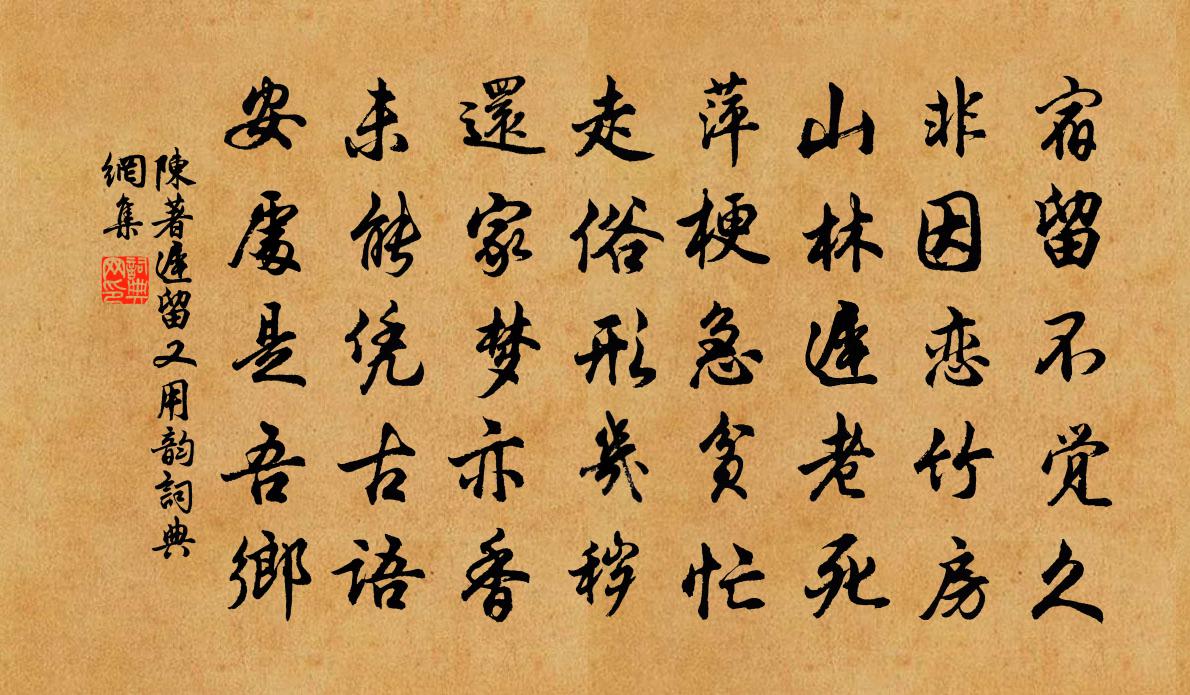 宿留不觉久
非因恋竹房
山林遲老死
萍梗急贫忙
走俗形幾秽
還家梦亦香
未能凭古语
安處是吾鄉
陳著遲留又用韵詞典
網集
詞典网印